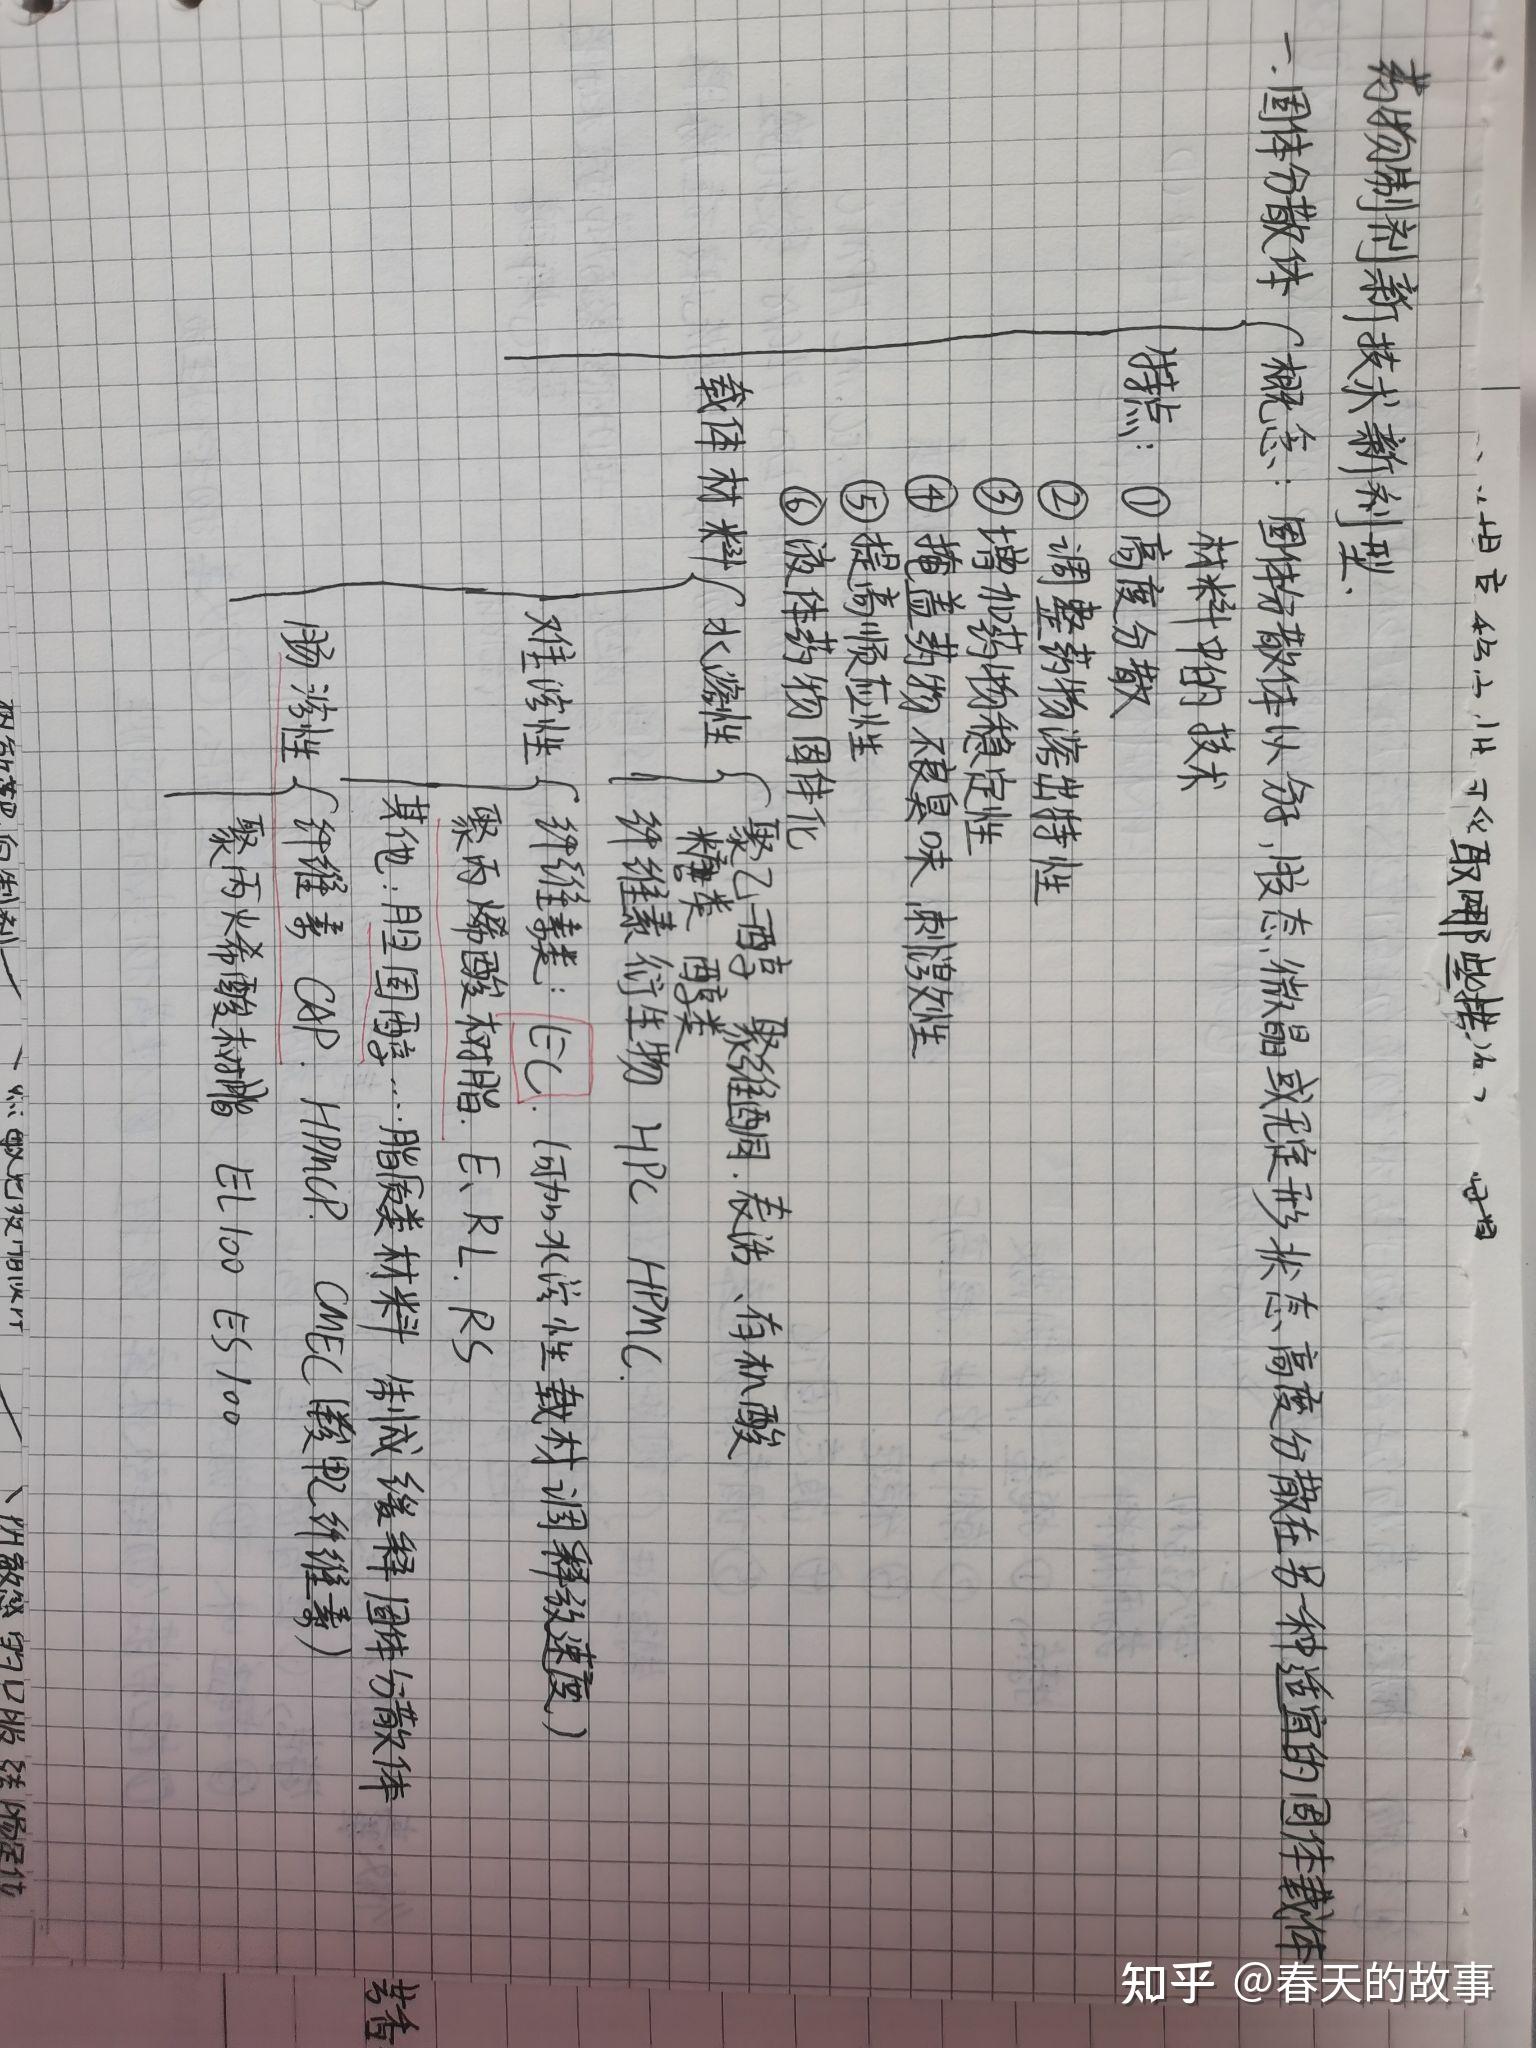 取哪些措
药物制剂新技术新剂型.
一.固体分散体
概念:固体分散体以分子,胶态,微晶或无定形状态,高度分散在另一种适宜的固体载体
材料中的技术
特点:①高度分散
②调整药物溶出特性
③增加药物稳定性
④掩盖药物不良臭味 刺激性
⑤提高顺应性
⑥液体药物固体化
载体材料
水溶性
聚乙二醇 聚维酮.表活、有机酸
糖类 醇类
纤维素衍生物 HPC HPMC.
难溶性
纤维素类:EC.(可加水溶性载材调释放速度)
聚丙烯酸树脂.E、RL.RS
其他:胆固醇…脂质类材料 制成缓释固体分散体
肠溶性
纤维素 CAP. HPMCP. CMEC(羧甲纤维素)
聚丙烯酸树脂 EL100 ES100
知乎 @春天的故事